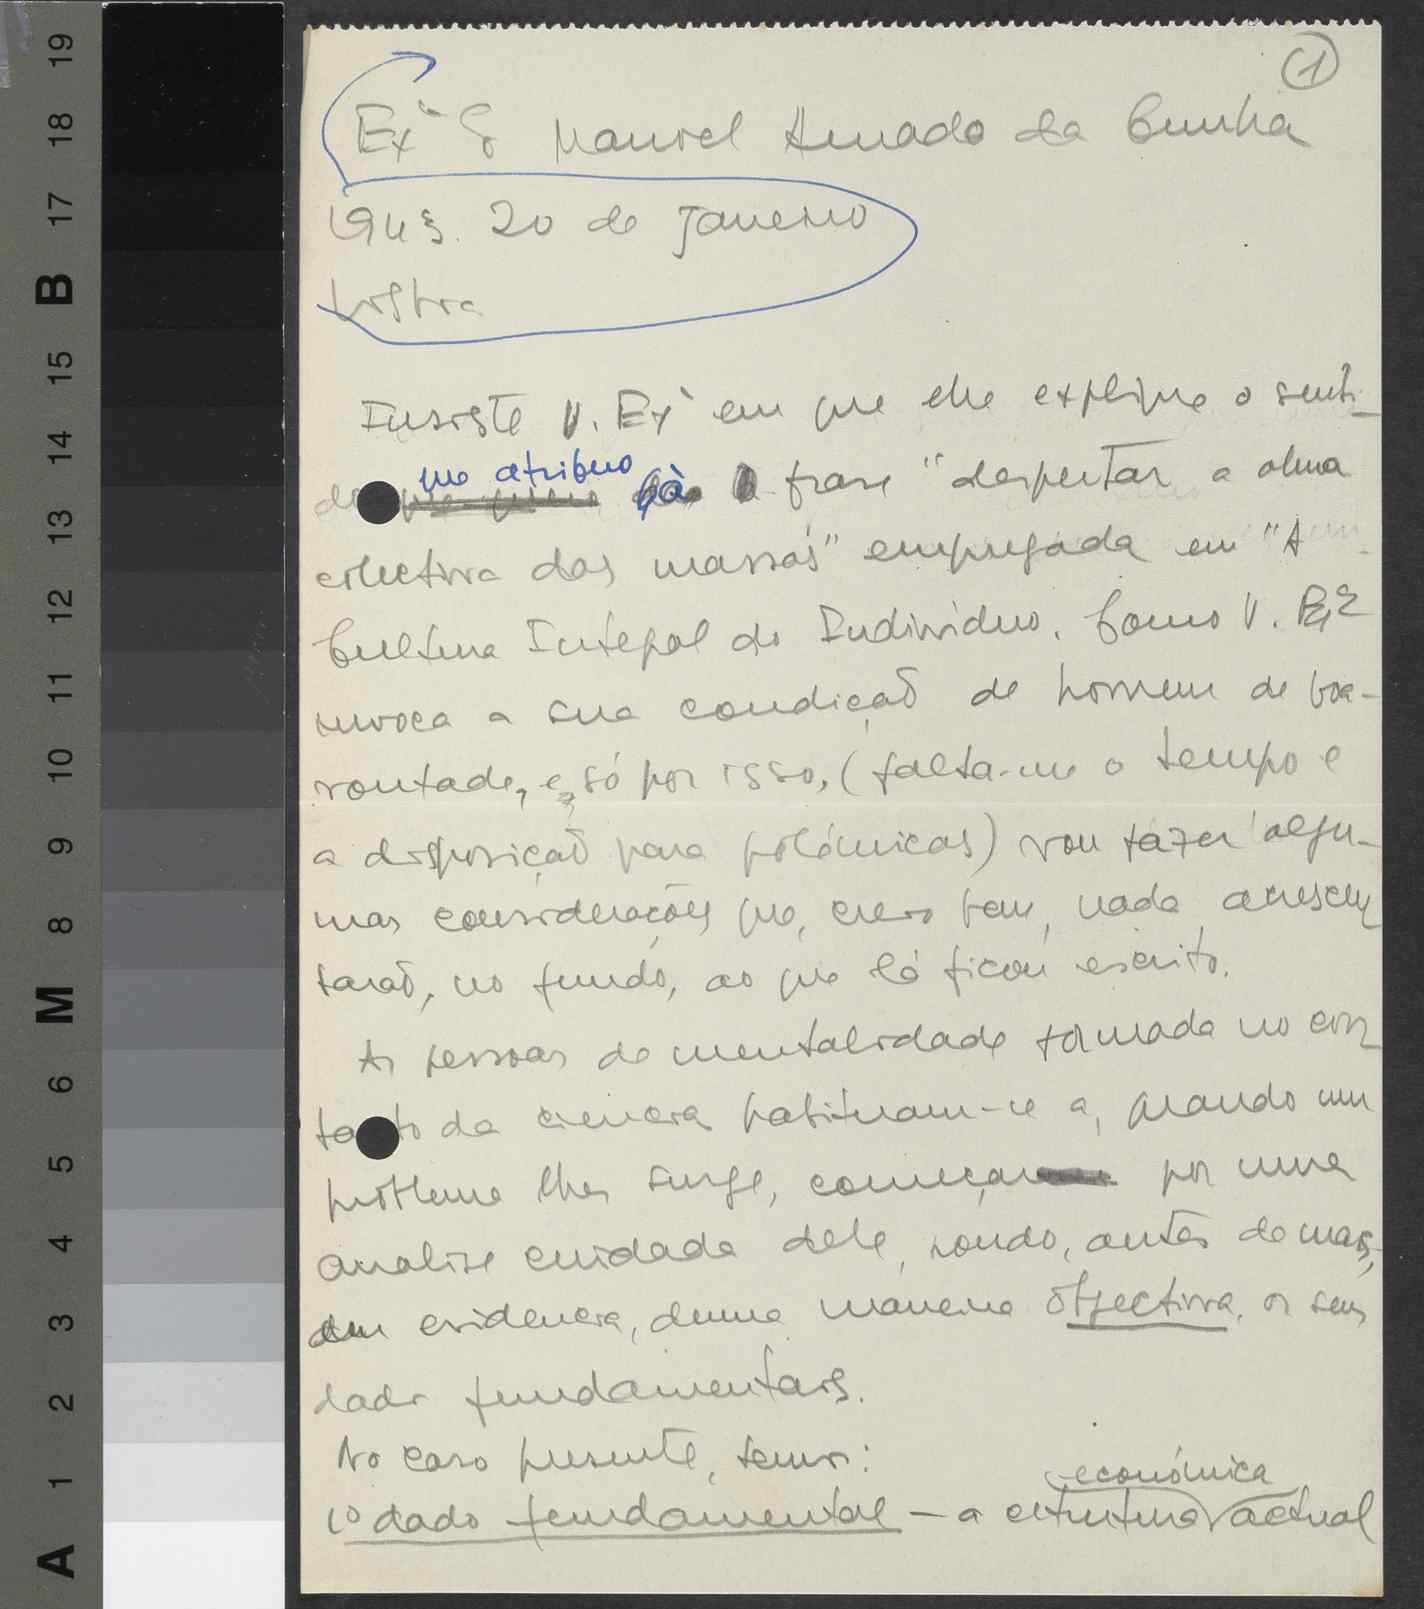 1
Exº Sr Manuel Amado da Cunha
1943. 20 de Janeiro
Lisboa
Insiste V. Exª em que lhe explique o senti-
do que atribuo à frase "despertar a alma
colectiva das massas" empregada em "A
Cultura Integral do Indivíduo. Como V. Exª
invoca a sua condição de homem de boa-
vontade, e, só por isso, (falta-me o tempo e
a disposição para polémicas) vou fazer algu-
mas considerações que, creio bem, nada acrescen
tarão, no fundo, ao que lá ficou escrito.
As pessoas de mentalidade formada no con
tacto da ciencia habituam-se a, quando um
problema lhes surge, começar por uma
analise cuidada dele, pondo, antes de mais,
em evidencia, duma maneira objectiva, os seus
dados fundamentais.
No caso presente, temos:
económica
1º dado fundamental - a estrutura actual